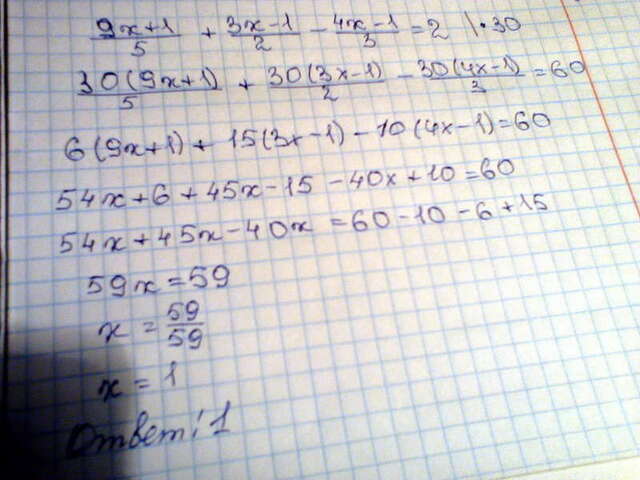 (9x+1)/5 + (3x-1)/2 - (4x-1)/3 = 2 |·30
30(9x+1)/5 + 30(3x-1)/2 - 30(4x-1)/3 = 60
6(9x+1) + 15(3x-1) - 10(4x-1) = 60
54x + 6 + 45x - 15 - 40x + 10 = 60
54x + 45x - 40x = 60 - 10 - 6 + 15
59x = 59
x = 59/59
x = 1
Ответ: 1